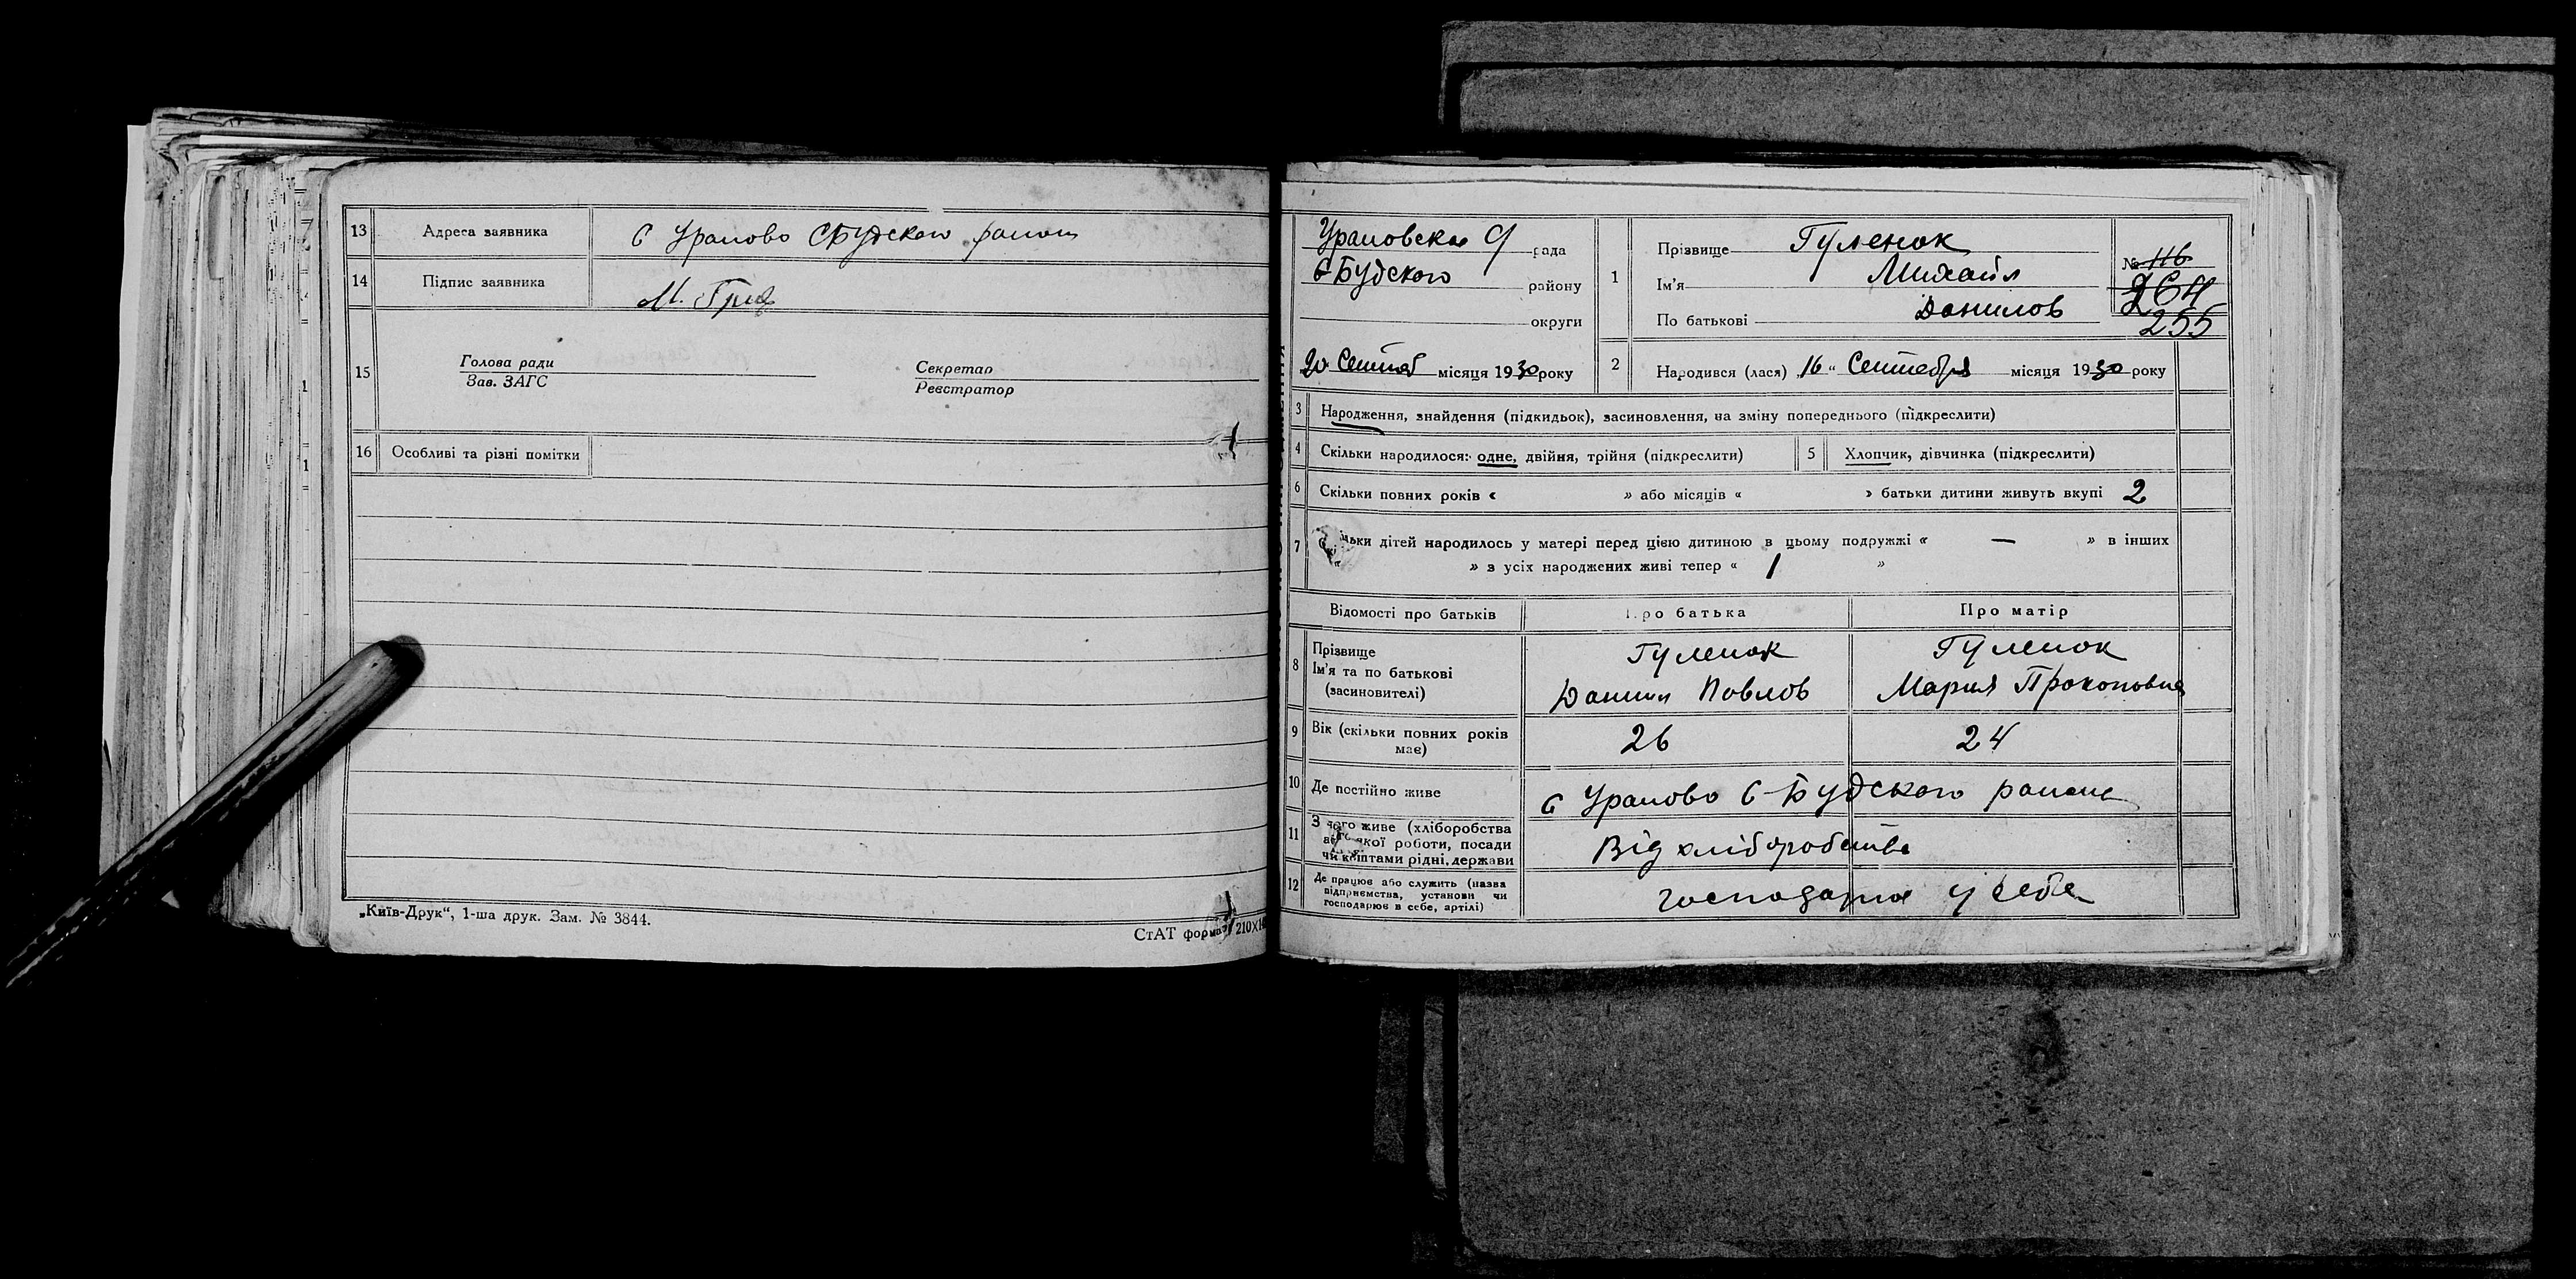 13 Адреса заявника с Уралово СБудского район
14 Підпис заявника М. Гриц
15 Голова ради
Зав. ЗАГС
Секретар
Реєстратор
16 Особливі та різні помітки
„Київ-Друк“, 1-ша друк. Зам. № 3844.
СтАТ формат 210×1
Ураловска рада
С-Будского району
округи
20 Сентяб місяця 1930 року
1 Прізвище Гуленок
Ім'я Михаил
По батькові Данилов
№ 116
264
255
2 Народився (лася) „16“ Сентебря місяця 1930 року
3 Народження, знайдення (підкидьок), засиновлення, на зміну попереднього (підкреслити)
4 Скільки народилося: одне, двійня, трійня (підкреслити)
5 Хлопчик, дівчинка (підкреслити)
6 Скільки повних років « » або місяців « » батьки дитини живуть вкупі 2
7 Скільки дітей народилось у матері перед цією дитиною в цьому подружжі « — » в інших
« » з усіх народжених живі тепер « 1 »
Відомості про батьків Про батька Про матір
8 Прізвище Гуленок Гуленок
Ім'я та по батькові
(засиновителі) Данил Павлов Мария Прокоповна
9 Вік (скільки повних років
має) 26 24
10 Де постійно живе с Уралово С-Будского района
11 З чого живе (хліборобства
або якої роботи, посади
чи коштами рідні, держави Від хліборобства
12 Де працює або служить (назва
підприємства, установи чи
господарює в себе, артілі) господарює у себе